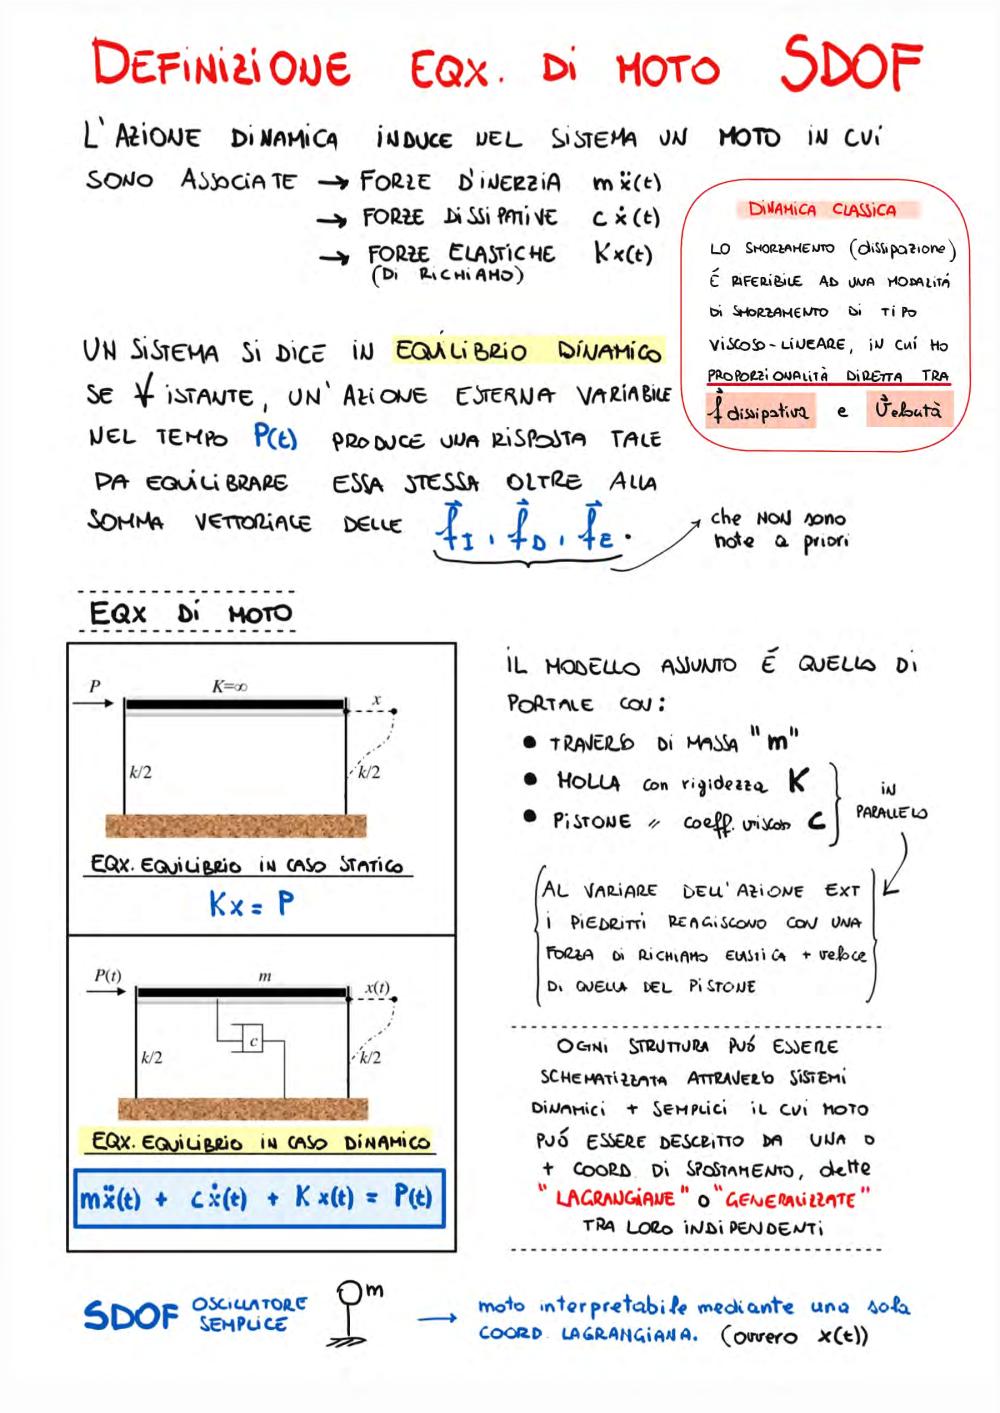 DEFINIZIONE EQX. DI MOTO SDOF
L'AZIONE DINAMICA INDUCE NEL SISTEMA UN MOTO IN CUI
SONO ASSOCIATE → FORZE D'INERZIA mẍ(t)
→ FORZE DISSIPATIVE cẋ(t)
→ FORZE ELASTICHE Kx(t)
(DI RICHIAMO)
DINAMICA CLASSICA
LO SMORZAMENTO (dissipazione)
É RIFERIBILE AD UNA MODALITÁ
DI SMORZAMENTO DI TIPO
VISCOSO-LINEARE, IN CUI HO
PROPORZIONALITÀ DIRETTA TRA
f dissipativa e velocità
UN SISTEMA SI DICE IN EQUILIBRIO DINAMICO
SE ∀ ISTANTE, UN'AZIONE ESTERNA VARIABILE
NEL TEMPO P(t) PRODUCE UNA RISPOSTA TALE
DA EQUILIBRARE ESSA STESSA OLTRE ALLA
SOMMA VETTORIALE DELLE f⃗I, f⃗D, f⃗E.
che NON sono
note a priori
EQX DI MOTO
P K=∞ x
k/2 k/2
EQX. EQUILIBRIO IN CASO STATICO
Kx = P
P(t) m x(t)
c
k/2 k/2
EQX. EQUILIBRIO IN CASO DINAMICO
mẍ(t) + cẋ(t) + Kx(t) = P(t)
IL MODELLO ASSUNTO É QUELLO DI
PORTALE CON:
• TRAVERSO DI MASSA "m"
• MOLLA con rigidezza K
• PISTONE " coeff. viscoso C
IN
PARALLELO
AL VARIARE DELL'AZIONE EXT
I PIEDRITTI REAGISCONO CON UNA
FORZA DI RICHIAMO ELASTICA + veloce
DI QUELLA DEL PISTONE
OGNI STRUTTURA PUÓ ESSERE
SCHEMATIZZATA ATTRAVERSO SISTEMI
DINAMICI + SEMPLICI IL CUI MOTO
PUÓ ESSERE DESCRITTO DA UNA O
+ COORD. DI SPOSTAMENTO, dette
"LAGRANGIANE" O "GENERALIZZATE"
TRA LORO INDIPENDENTI
SDOF OSCILLATORE
SEMPLICE
m
→ moto interpretabile mediante una sola
COORD. LAGRANGIANA. (ovvero x(t))